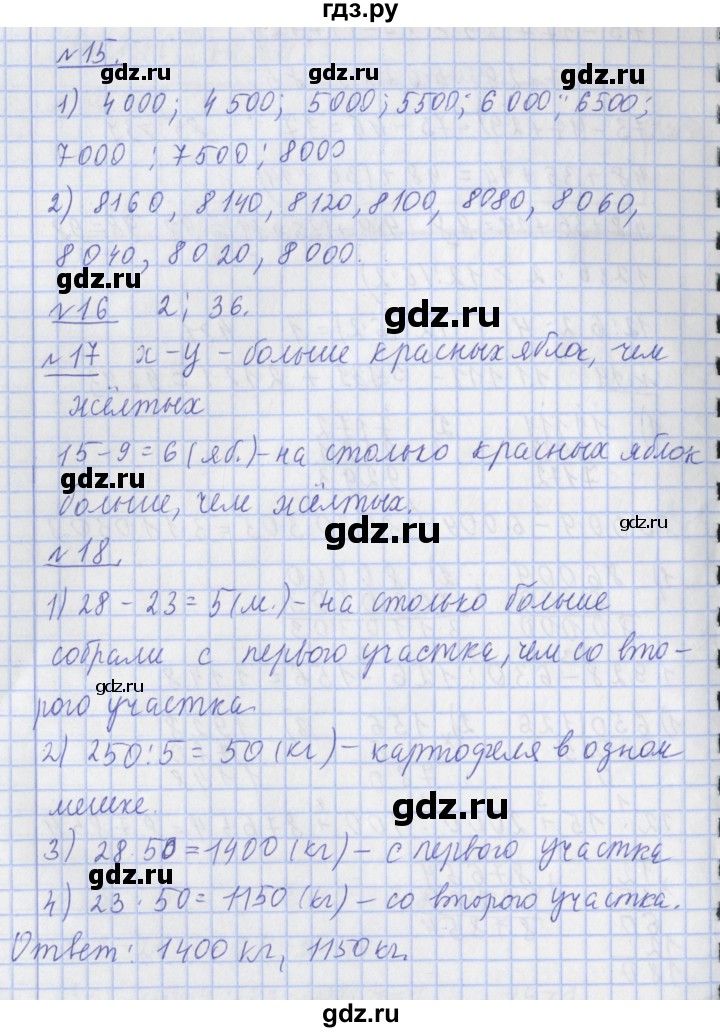 гдз.ру
№15.
gdz.ru
gdz.ru
gdz.ru
1) 4000; 4500; 5000; 5500; 6000; 6500;
7000 ; 7500; 8000
2) 8160, 8140, 8120, 8100, 8080, 8060,
8040, 8020, 8000.
gdz.ru
№16 2; 36.
gdz.ru
№17 х-у - больше красных яблок, чем
жёлтых
15-9=6(яб.)-на столько красных яблок
gdz.ru
больше, чем жёлтых.
gdz.ru
gdz.ru
№18.
1) 28 - 23 = 5(м.)- на столько больше
собрали с первого участка, чем со вто-
gdz.ru
рого участка.
2) 250:5 = 50 (кг) - картофеля в одном
мешке.
gdz.ru
3) 28·50=1400 (кг) - с первого участка
gdz.ru
4) 23·50= 1150 (кг) - со второго участка.
Ответ: 1400 кг, 1150 кг.
gdz.ru
gdz.ru